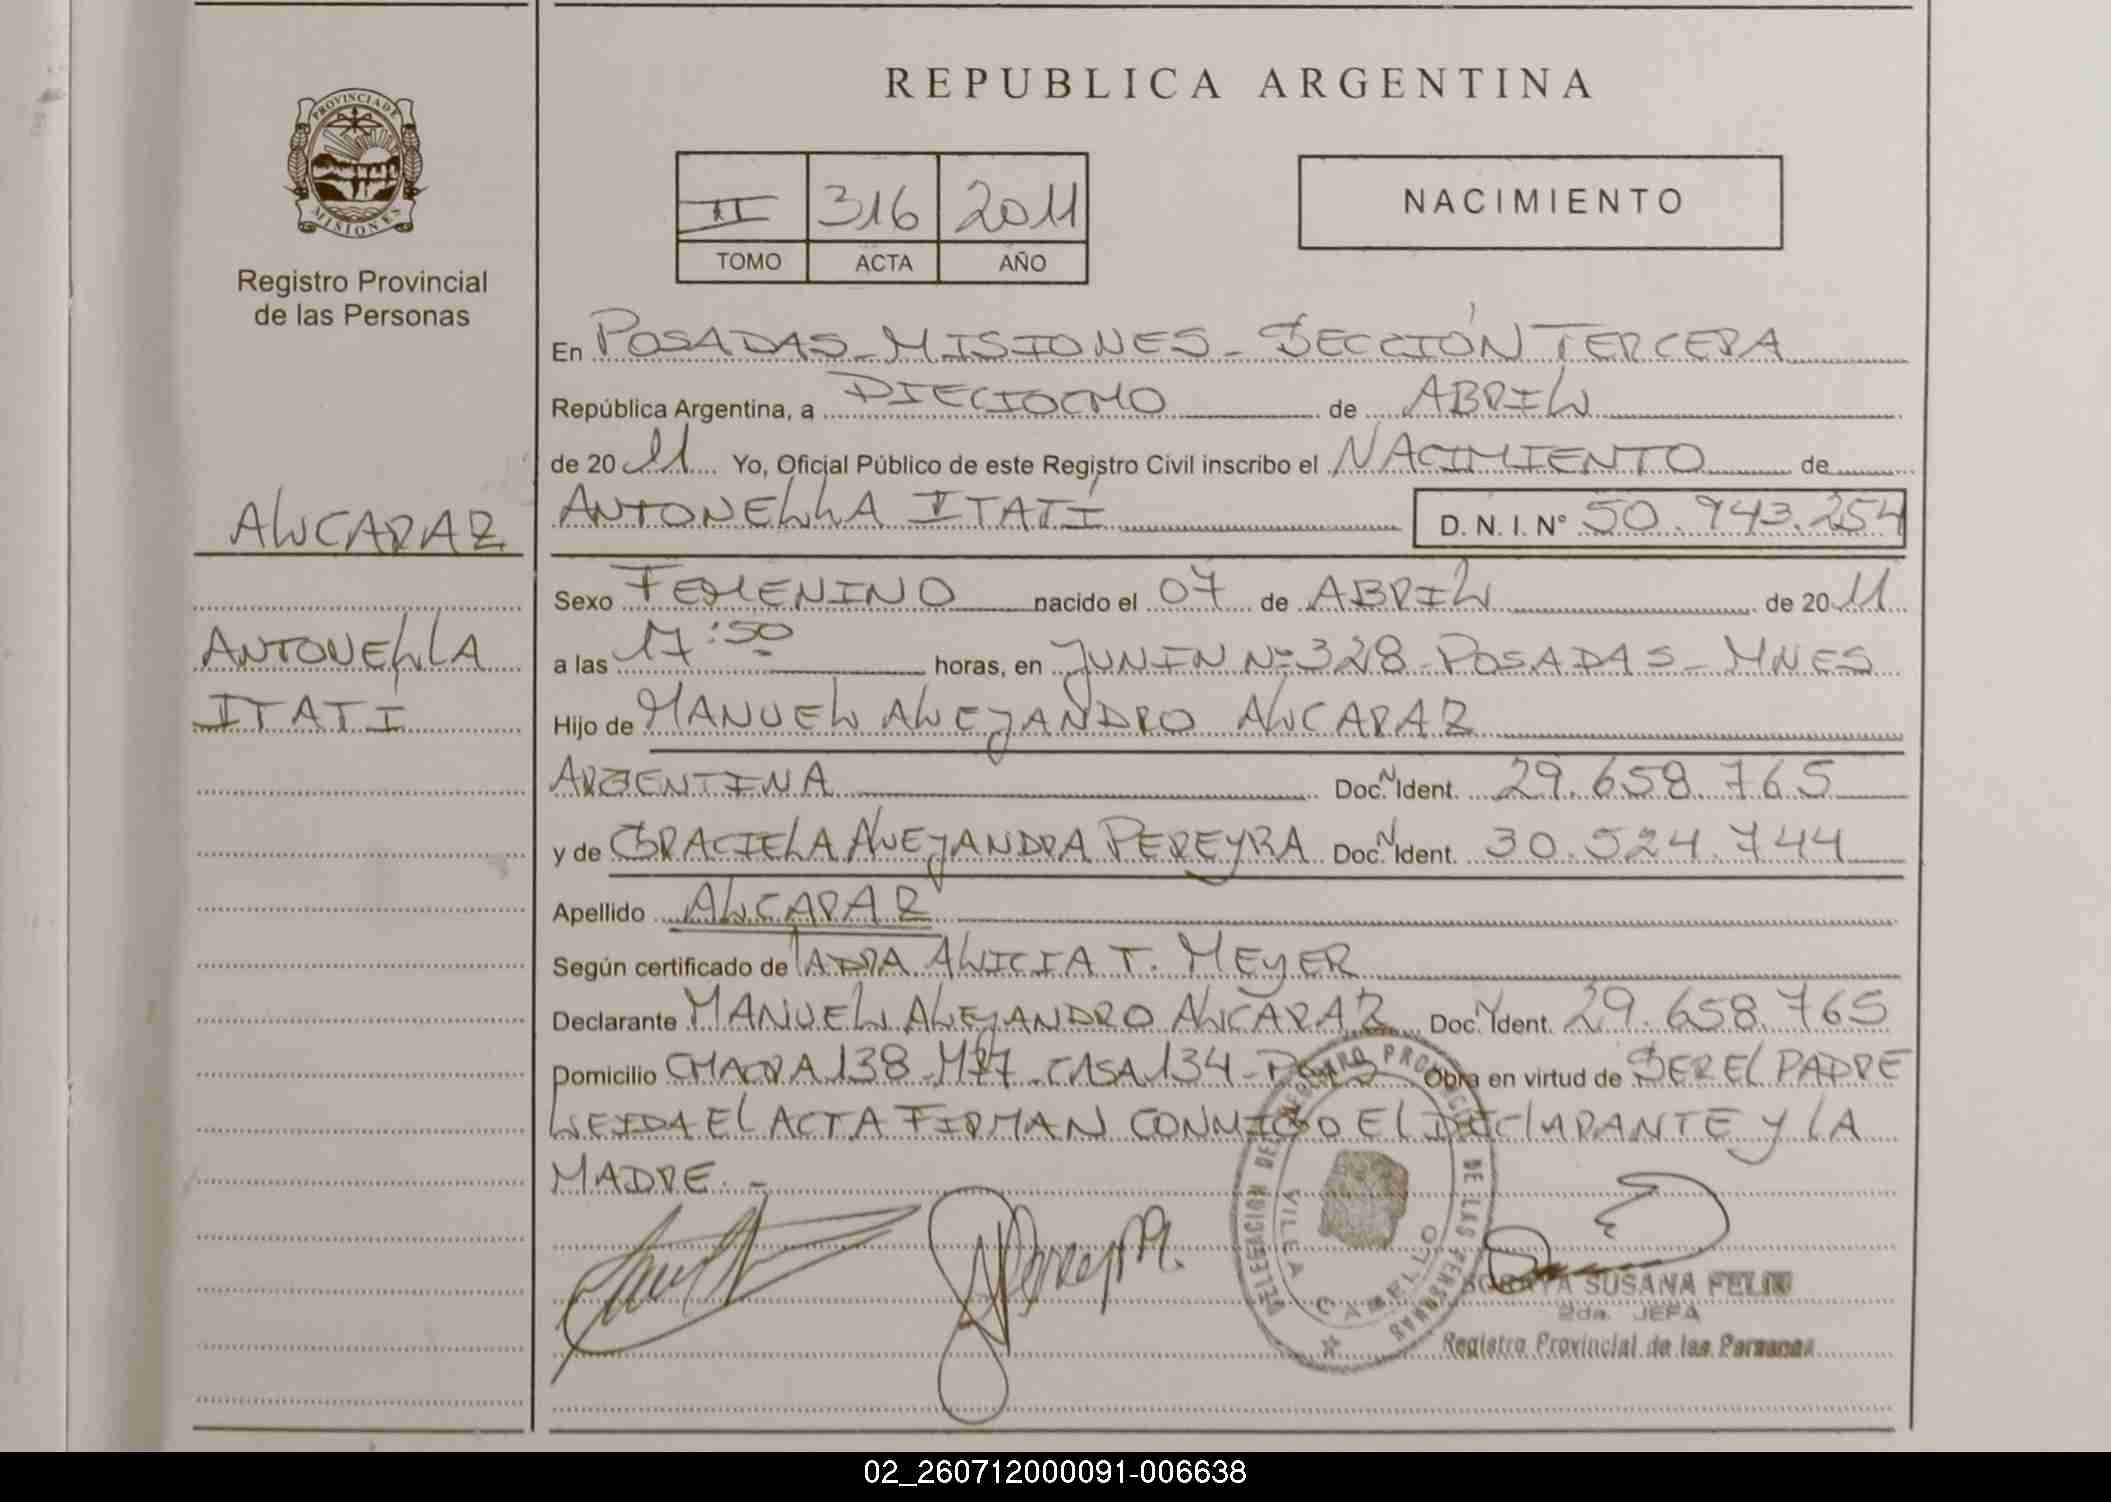 PROVINCIA DE
MISIONES
Registro Provincial
de las Personas
ALCARAZ
ANTONELLA
ITATI
REPUBLICA ARGENTINA
II 316 2011
TOMO ACTA AÑO
NACIMIENTO
En POSADAS - MISIONES - SECCIÓN TERCERA
República Argentina, a DIECIOCHO de ABRIL
de 20 11 Yo, Oficial Público de este Registro Civil inscribo el NACIMIENTO de
ANTONELLA ITATÍ D. N. I. N° 50.943.254
Sexo FEMENINO nacido el 07 de ABRIL de 20 11
a las 17:50 horas, en JUNIN Nº 328 - POSADAS - MNES
Hijo de MANUEL ALEJANDRO ALCARAZ
ARGENTINA Doc. N Ident. 29.658.765
y de GRACIELA ALEJANDRA PEREYRA Doc. N Ident. 30.524.744
Apellido ALCARAZ
Según certificado de LADRA ALICIA T. MEYER
Declarante MANUEL ALEJANDRO ALCARAZ Doc. N Ident. 29.658.765
Domicilio CHACRA 138 - M27 - CASA 134 - Obra en virtud de SER EL PADRE
LEIDA EL ACTA FIRMAN CONMIGO EL DECLARANTE Y LA
MADRE. -
DELEGACION DEL REGISTRO PROVINCIAL DE LAS PERSONAS
VILLA CABELLO
SORAYA SUSANA FELIX
2da. JEFA
Registro Provincial de las Personas
02_260712000091-006638